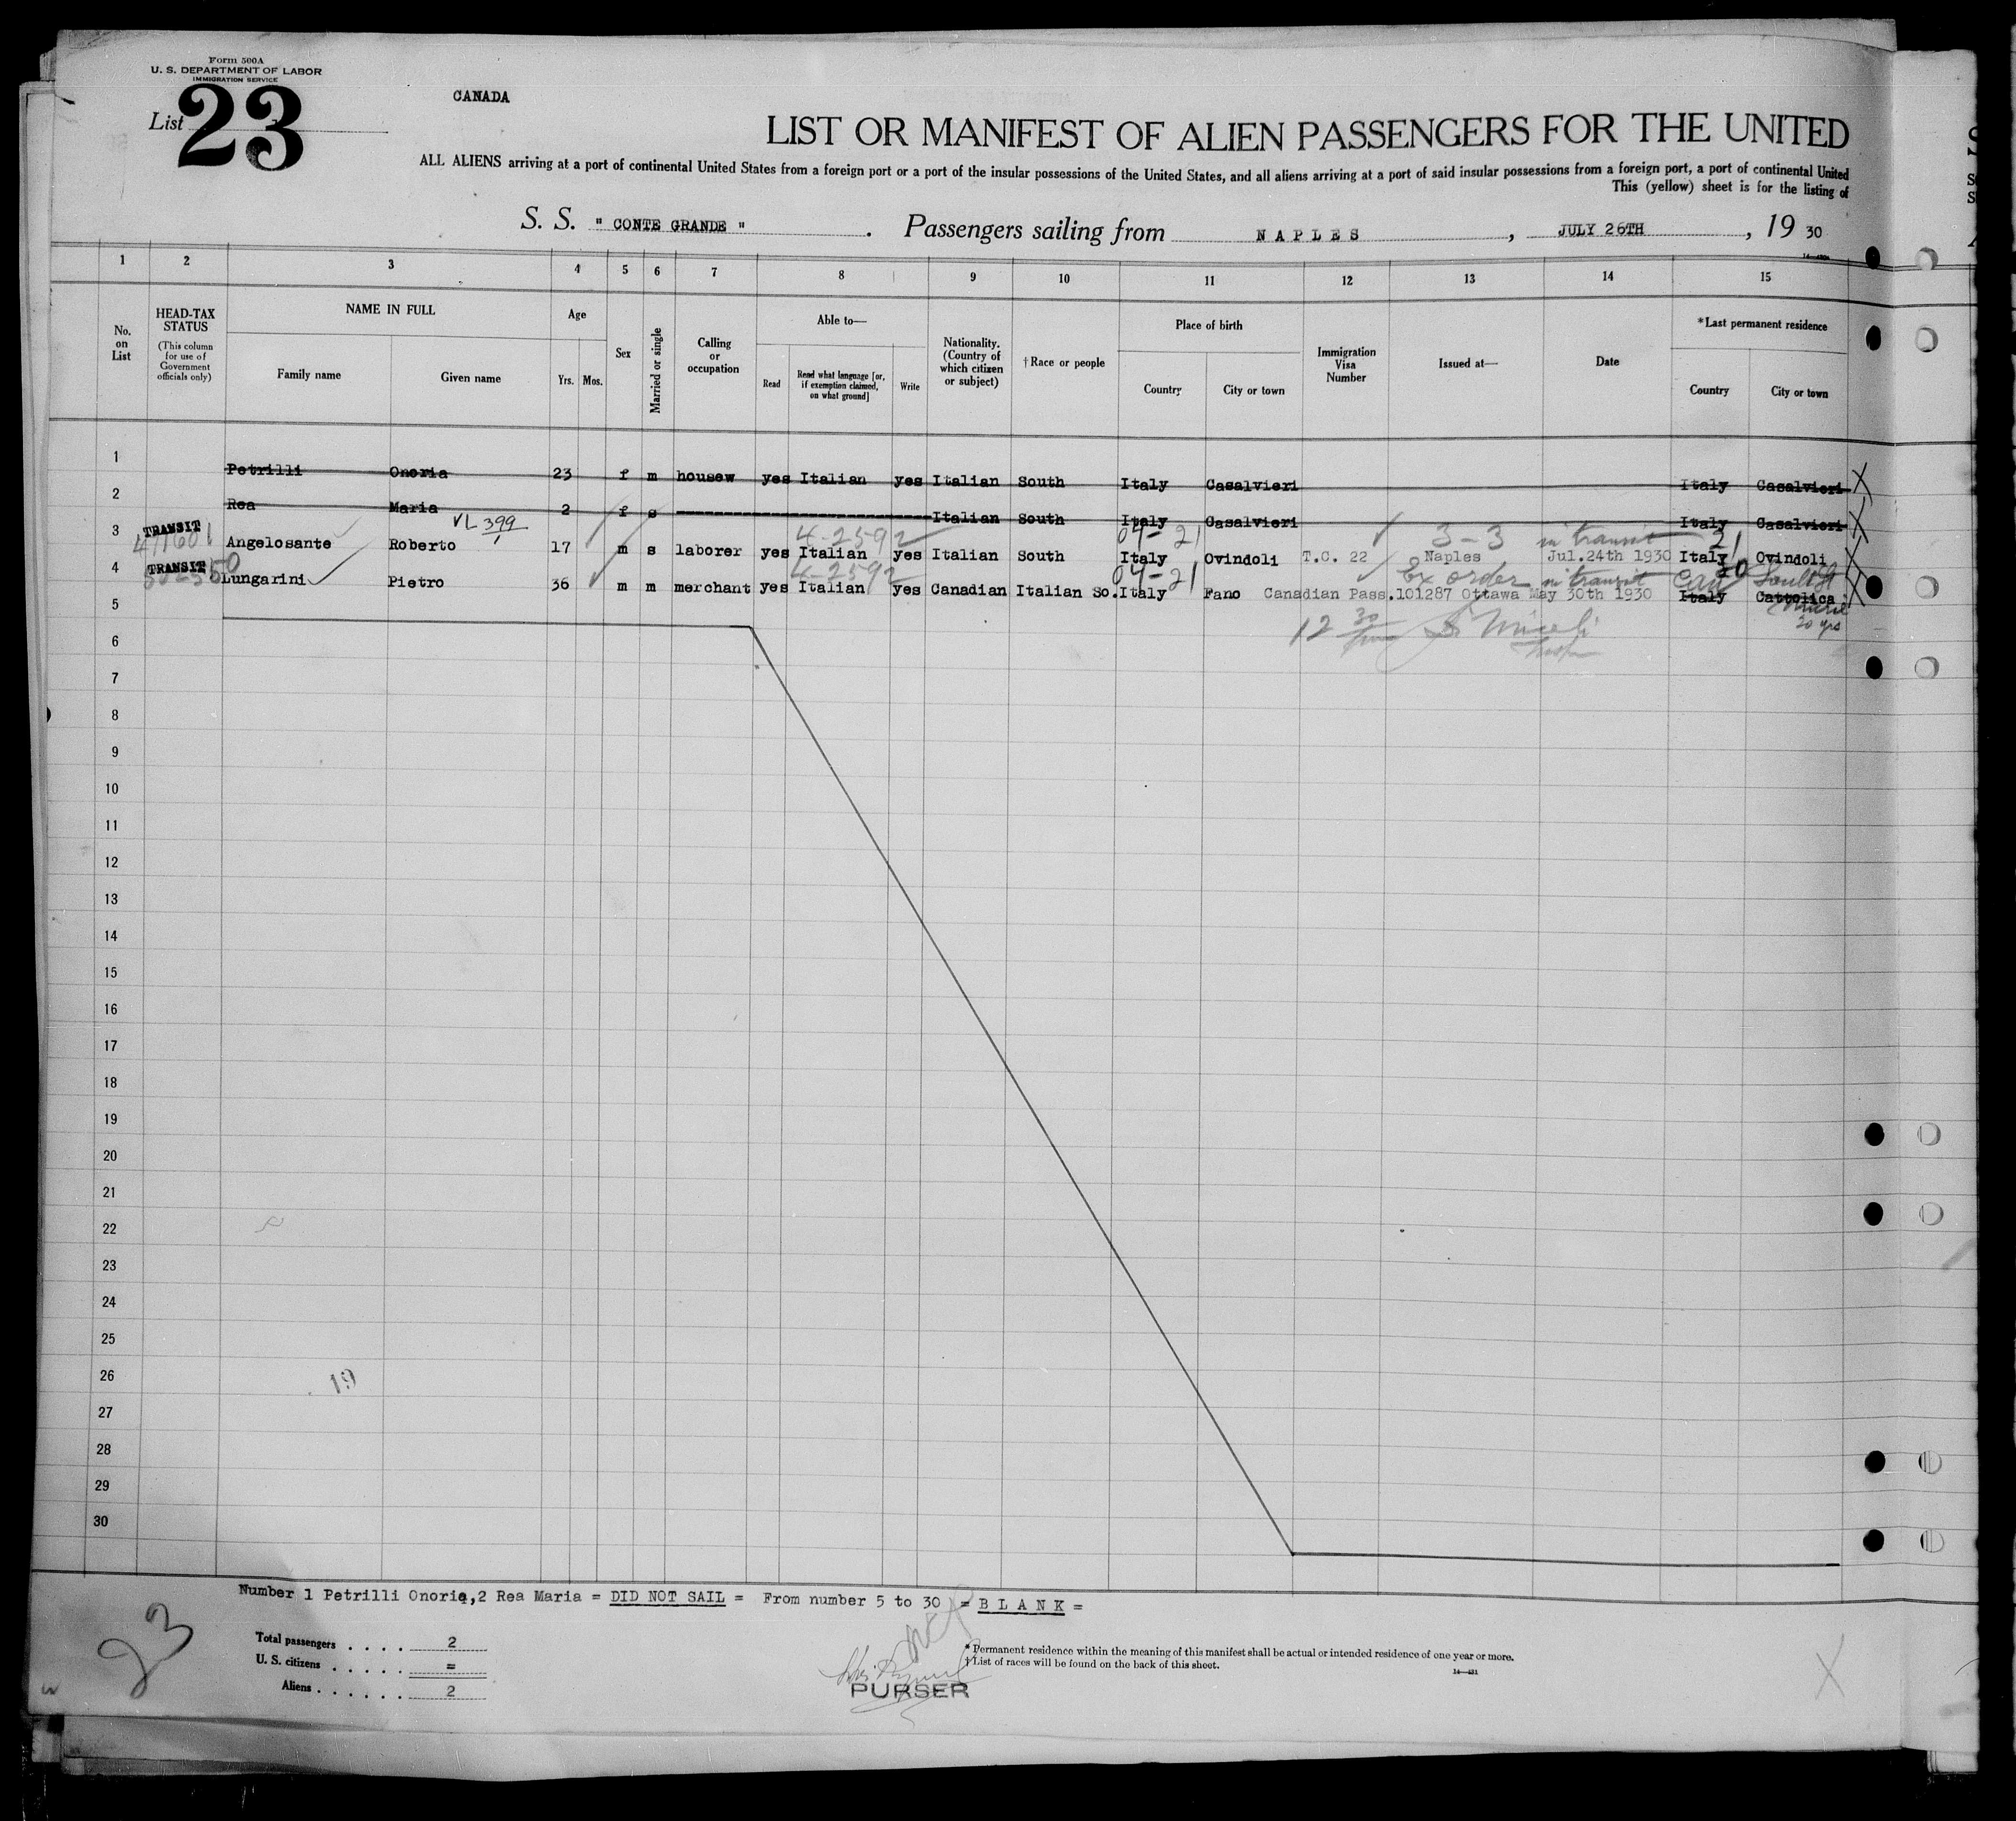 Form 500A
U. S. DEPARTMENT OF LABOR
IMMIGRATION SERVICE
List 23
CANADA
LIST OR MANIFEST OF ALIEN PASSENGERS FOR THE UNITED
ALL ALIENS arriving at a port of continental United States from a foreign port or a port of the insular possessions of the United States, and all aliens arriving at a port of said insular possessions from a foreign port, a port of continental United
This (yellow) sheet is for the listing of
S. S. " CONTE GRANDE " . Passengers sailing from NAPLES , JULY 26TH , 19 30
1 2 3 4 5 6 7 8 9 10 11 12 13 14 15
No. on List
HEAD-TAX STATUS (This column for use of Government officials only)
NAME IN FULL
Family name Given name
Age
Yrs. Mos.
Sex
Married or single
Calling or occupation
Able to—
Read Read what language [or, if exemption claimed, on what ground] Write
Nationality. (Country of which citizen or subject)
†Race or people
Place of birth
Country City or town
Immigration Visa Number
Issued at—
Date
*Last permanent residence
Country City or town
1 Petrilli Onoria 23 f m housew yes Italian yes Italian South Italy Casalvieri Italy Casalvieri X
2 Rea Maria 2 f s Italian South Italy Casalvieri Italy Casalvieri X
VL 399 4-2592 04-21 3-3 in transit 21
3 TRANSIT Angelosante Roberto 17 m s laborer yes Italian yes Italian South Italy Ovindoli T.C. 22 Naples Jul.24th 1930 Italy Ovindoli X
4-2592 04-21 Ex order in transit Can 20 Sault St
4 TRANSIT Lungarini Pietro 36 m m merchant yes Italian yes Canadian Italian So. Italy Fano Canadian Pass.101287 Ottawa May 30th 1930 Italy Cattolica X
Marie
20 yrs
5
12 30
6
7
8
9
10
11
12
13
14
15
16
17
18
19
20
21
22
23
24
25
26
19
27
28
29
30
Number 1 Petrilli Onoria,2 Rea Maria = DID NOT SAIL = From number 5 to 30 = BLANK =
23
Total passengers . . . . 2
U. S. citizens . . . . . =
Aliens . . . . . . 2
PURSER
* Permanent residence within the meaning of this manifest shall be actual or intended residence of one year or more.
† List of races will be found on the back of this sheet.
14—481
X